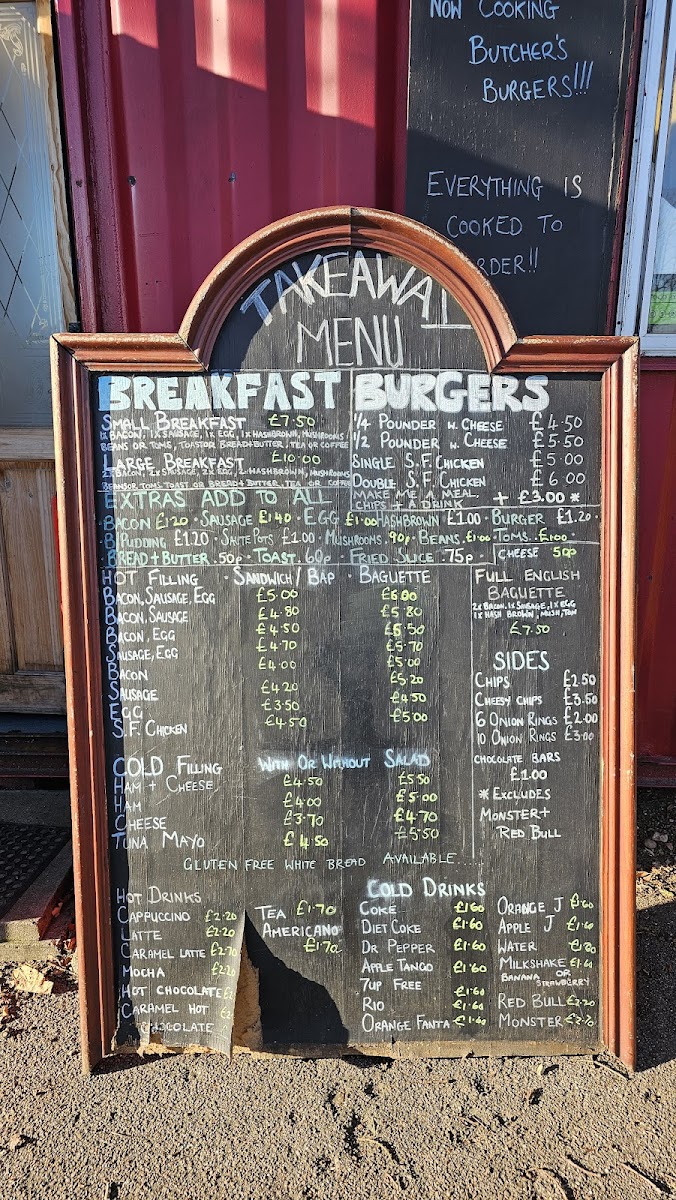 NOW COOKING
BUTCHER'S
BURGERS!!!
EVERYTHING IS
COOKED TO
RDER!!
TAKEAWAY
MENU
BREAKFAST
SMALL BREAKFAST £7.50
1x BACON, 1x SAUSAGE, 1x EGG, 1x HASHBROWN, MUSHROOMS
BEANS OR TOMS, TOAST OR BREAD+BUTTER, TEA OR COFFEE
LARGE BREAKFAST £10.00
2x BACON, 2x SAUSAGE, 2x EGG, 2 HASHBROWN, MUSHROOMS
BEANS OR TOMS TOAST OR BREAD+BUTTER, TEA OR COFFEE
BURGERS
1/4 POUNDER W. CHEESE £4.50
1/2 POUNDER W. CHEESE £5.50
SINGLE S.F. CHICKEN £5.00
DOUBLE S.F. CHICKEN £6.00
MAKE ME A MEAL
CHIPS + A DRINK + £3.00 *
EXTRAS ADD TO ALL
BACON £1.20 · SAUSAGE £1.40 · EGG £1.00 HASHBROWN £1.00 · BURGER £1.20 ·
B.PUDDING £1.20 · SAUTE POTS £1.00 · MUSHROOMS 90p · BEANS £1.00 · TOMS £1.00 ·
BREAD+BUTTER .50p · TOAST .60p · FRIED SLICE .75p · CHEESE 50p
HOT FILLING · SANDWICH/BAP · BAGUETTE
BACON, SAUSAGE, EGG £5.00 £6.00
BACON, SAUSAGE £4.80 £5.80
BACON, EGG £4.50 £5.50
SAUSAGE, EGG £4.70 £5.70
BACON £4.00 £5.00
SAUSAGE £4.20 £5.20
EGG £3.50 £4.50
S.F. CHICKEN £4.50 £5.00
FULL ENGLISH
BAGUETTE
2x BACON, 1x SAUSAGE, 1x EGG
1x HASH BROWN, MUSH, TOM
£7.50
SIDES
CHIPS £2.50
CHEESY CHIPS £3.50
6 ONION RINGS £2.00
10 ONION RINGS £3.00
CHOCOLATE BARS
£1.00
* EXCLUDES
MONSTER +
RED BULL
COLD FILLING WITH OR WITHOUT SALAD
HAM + CHEESE £4.50 £5.50
HAM £4.00 £5.00
CHEESE £3.70 £4.70
TUNA MAYO £4.50 £5.50
GLUTEN FREE WHITE BREAD AVAILABLE....
HOT DRINKS
CAPPUCCINO £2.20
LATTE £2.20
CARAMEL LATTE £2.70
MOCHA £2.20
HOT CHOCOLATE £
CARAMEL HOT £
CHOCOLATE
TEA £1.70
AMERICANO
£1.70
COLD DRINKS
COKE £1.60
DIET COKE £1.60
DR PEPPER £1.60
APPLE TANGO £1.60
7UP FREE
RIO £1.60
ORANGE FANTA £1.60
ORANGE J £1.60
APPLE J £1.60
WATER
MILKSHAKE
BANANA OR
STRAWBERRY
RED BULL £2.20
MONSTER